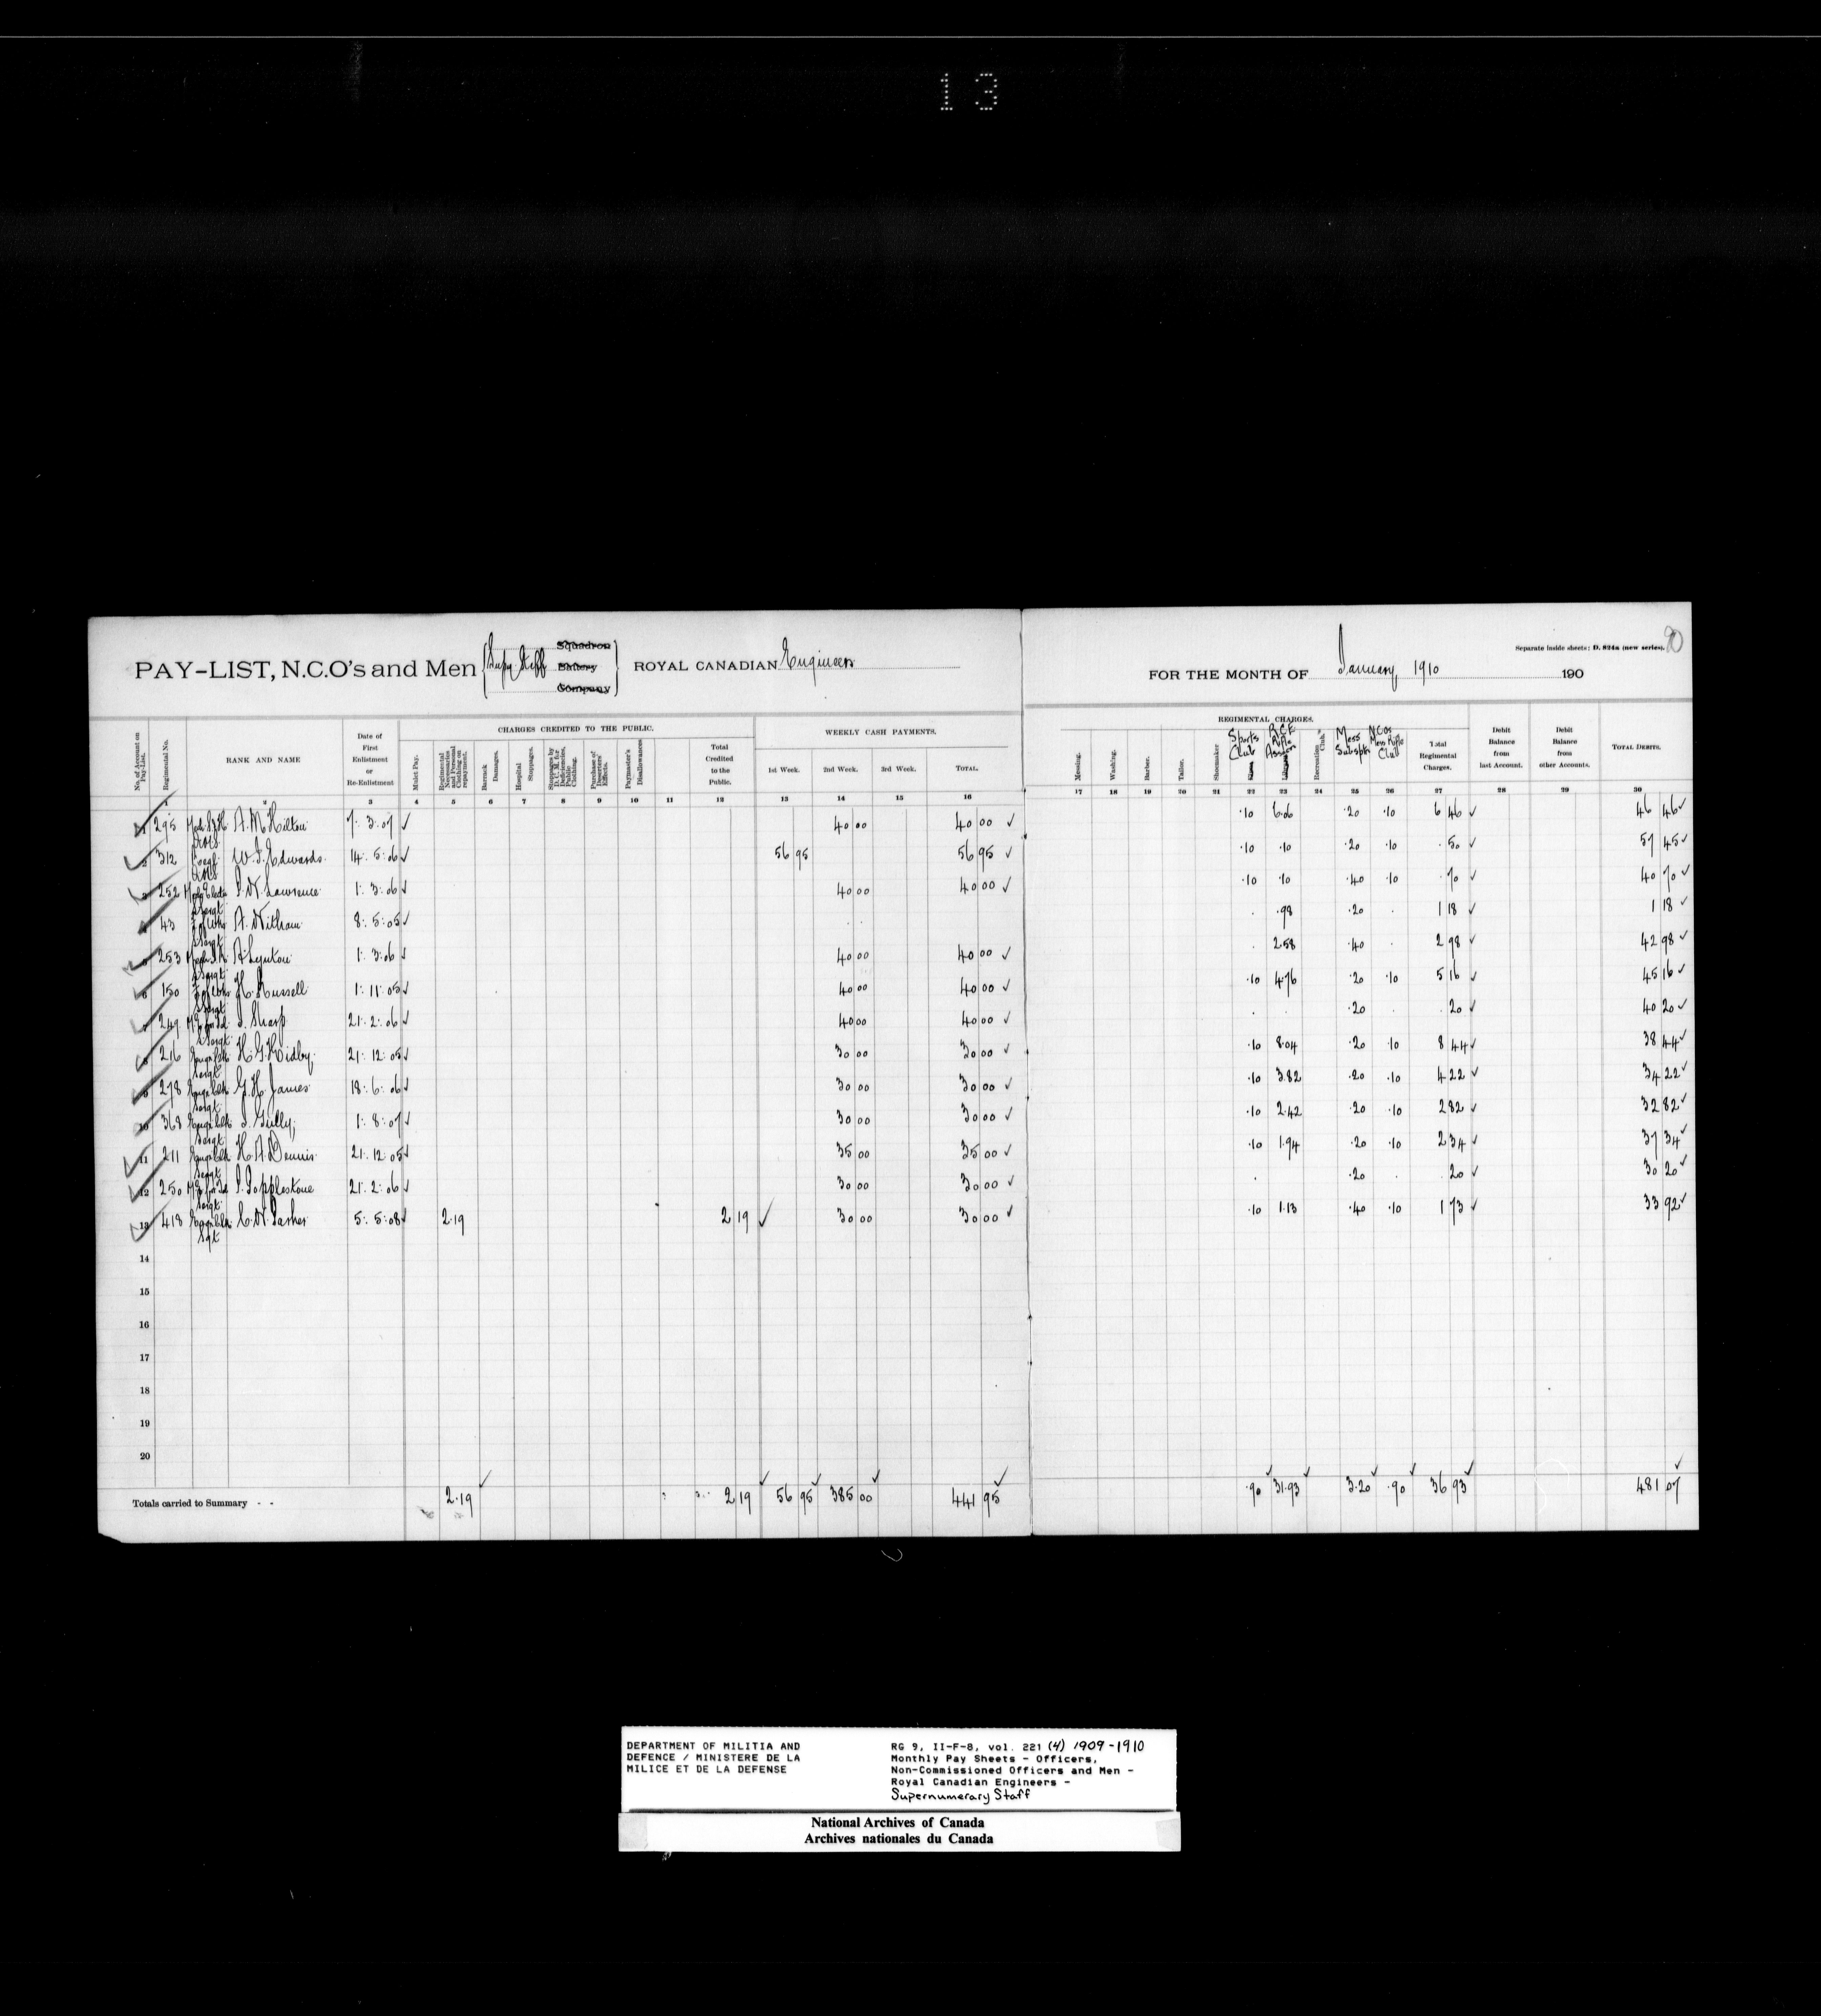 13
PAY-LIST, N.C.O's and Men Supy Staff Squadron Battery Company ROYAL CANADIAN Engineers
FOR THE MONTH OF January 1910 190
Separate inside sheets; D. 824a (new series). 20
No. of Account on Pay-List.
Regimental No.
RANK AND NAME
Date of First Enlistment or Re-Enlistment
CHARGES CREDITED TO THE PUBLIC.
Mulct Pay.
Regimental Necessaries and Personal Clothing on repayment.
Barrack Damages.
Hospital Stoppages.
Stoppages by D. C. M. for Deficiencies, Public Clothing.
Purchase of Deserters' Effects.
Paymaster's Disallowances
Total Credited to the Public.
WEEKLY CASH PAYMENTS.
1st Week. 2nd Week. 3rd Week. TOTAL.
REGIMENTAL CHARGES.
Messing. Washing. Barber. Tailor. Shoemaker
Sports Club
R.C.E. Rifle Assocn
Library
Recreation Club.
Mess Subsptn
N.COs Mess Rifle Club
Total Regimental Charges.
Debit Balance from last Account.
Debit Balance from other Accounts.
TOTAL DEBITS.
1 2 3 4 5 6 7 8 9 10 11 12 13 14 15 16 17 18 19 20 21 22 23 24 25 26 27 28 29 30
1 295 A. M. Hilton 7. 3. 07 40 00 40 00 .10 6.06 .20 .10 6 46 46 46
2 312 W. J. Edwards 14. 5. 06 56 95 56 95 .10 .10 .20 .10 .50 57 45
3 252 Lawrence 1. 3. 06 40 00 40 00 .10 .10 .40 .10 .70 40 70
4 43 A. Witham 8. 5. 05 .98 .20 1 18 1 18
5 253 A. Lynton 1. 3. 06 40 00 40 00 2.58 .40 2 98 42 98
6 150 Sergt H. Russell 1. 11. 05 40 00 40 00 .10 4.76 .20 .10 5 16 45 16
7 249 Sergt Sharp 21. 2. 06 40 00 40 00 .20 .20 40 20
8 216 H. G. Kidby 21. 12. 05 30 00 30 00 .10 8.04 .20 .10 8 44 38 44
9 278 Sergt G. H. James 18. 6. 06 30 00 30 00 .10 3.82 .20 .10 4 22 34 22
10 368 Sergt Gully 1. 8. 07 30 00 30 00 .10 2.42 .20 .10 2 82 32 82
11 211 Sergt H. A. Dennis 21. 12. 05 35 00 35 00 .10 1.94 .20 .10 2 34 37 34
12 250 Sergt Popplestone 21. 2. 06 30 00 30 00 .20 .20 30 20
13 418 C. W. Parker 5. 5. 08 2.19 2 19 30 00 30 00 .10 1.13 .40 .10 1 73 33 92
Sgt
14
15
16
17
18
19
20
Totals carried to Summary - - 2.19 2 19 56 95 385 00 441 95 .90 31.93 3.20 .90 36 93 481 07
DEPARTMENT OF MILITIA AND
DEFENCE / MINISTERE DE LA
MILICE ET DE LA DEFENSE
RG 9, II-F-8, vol. 221 (4) 1909-1910
Monthly Pay Sheets - Officers,
Non-Commissioned Officers and Men -
Royal Canadian Engineers -
Supernumerary Staff
National Archives of Canada
Archives nationales du Canada